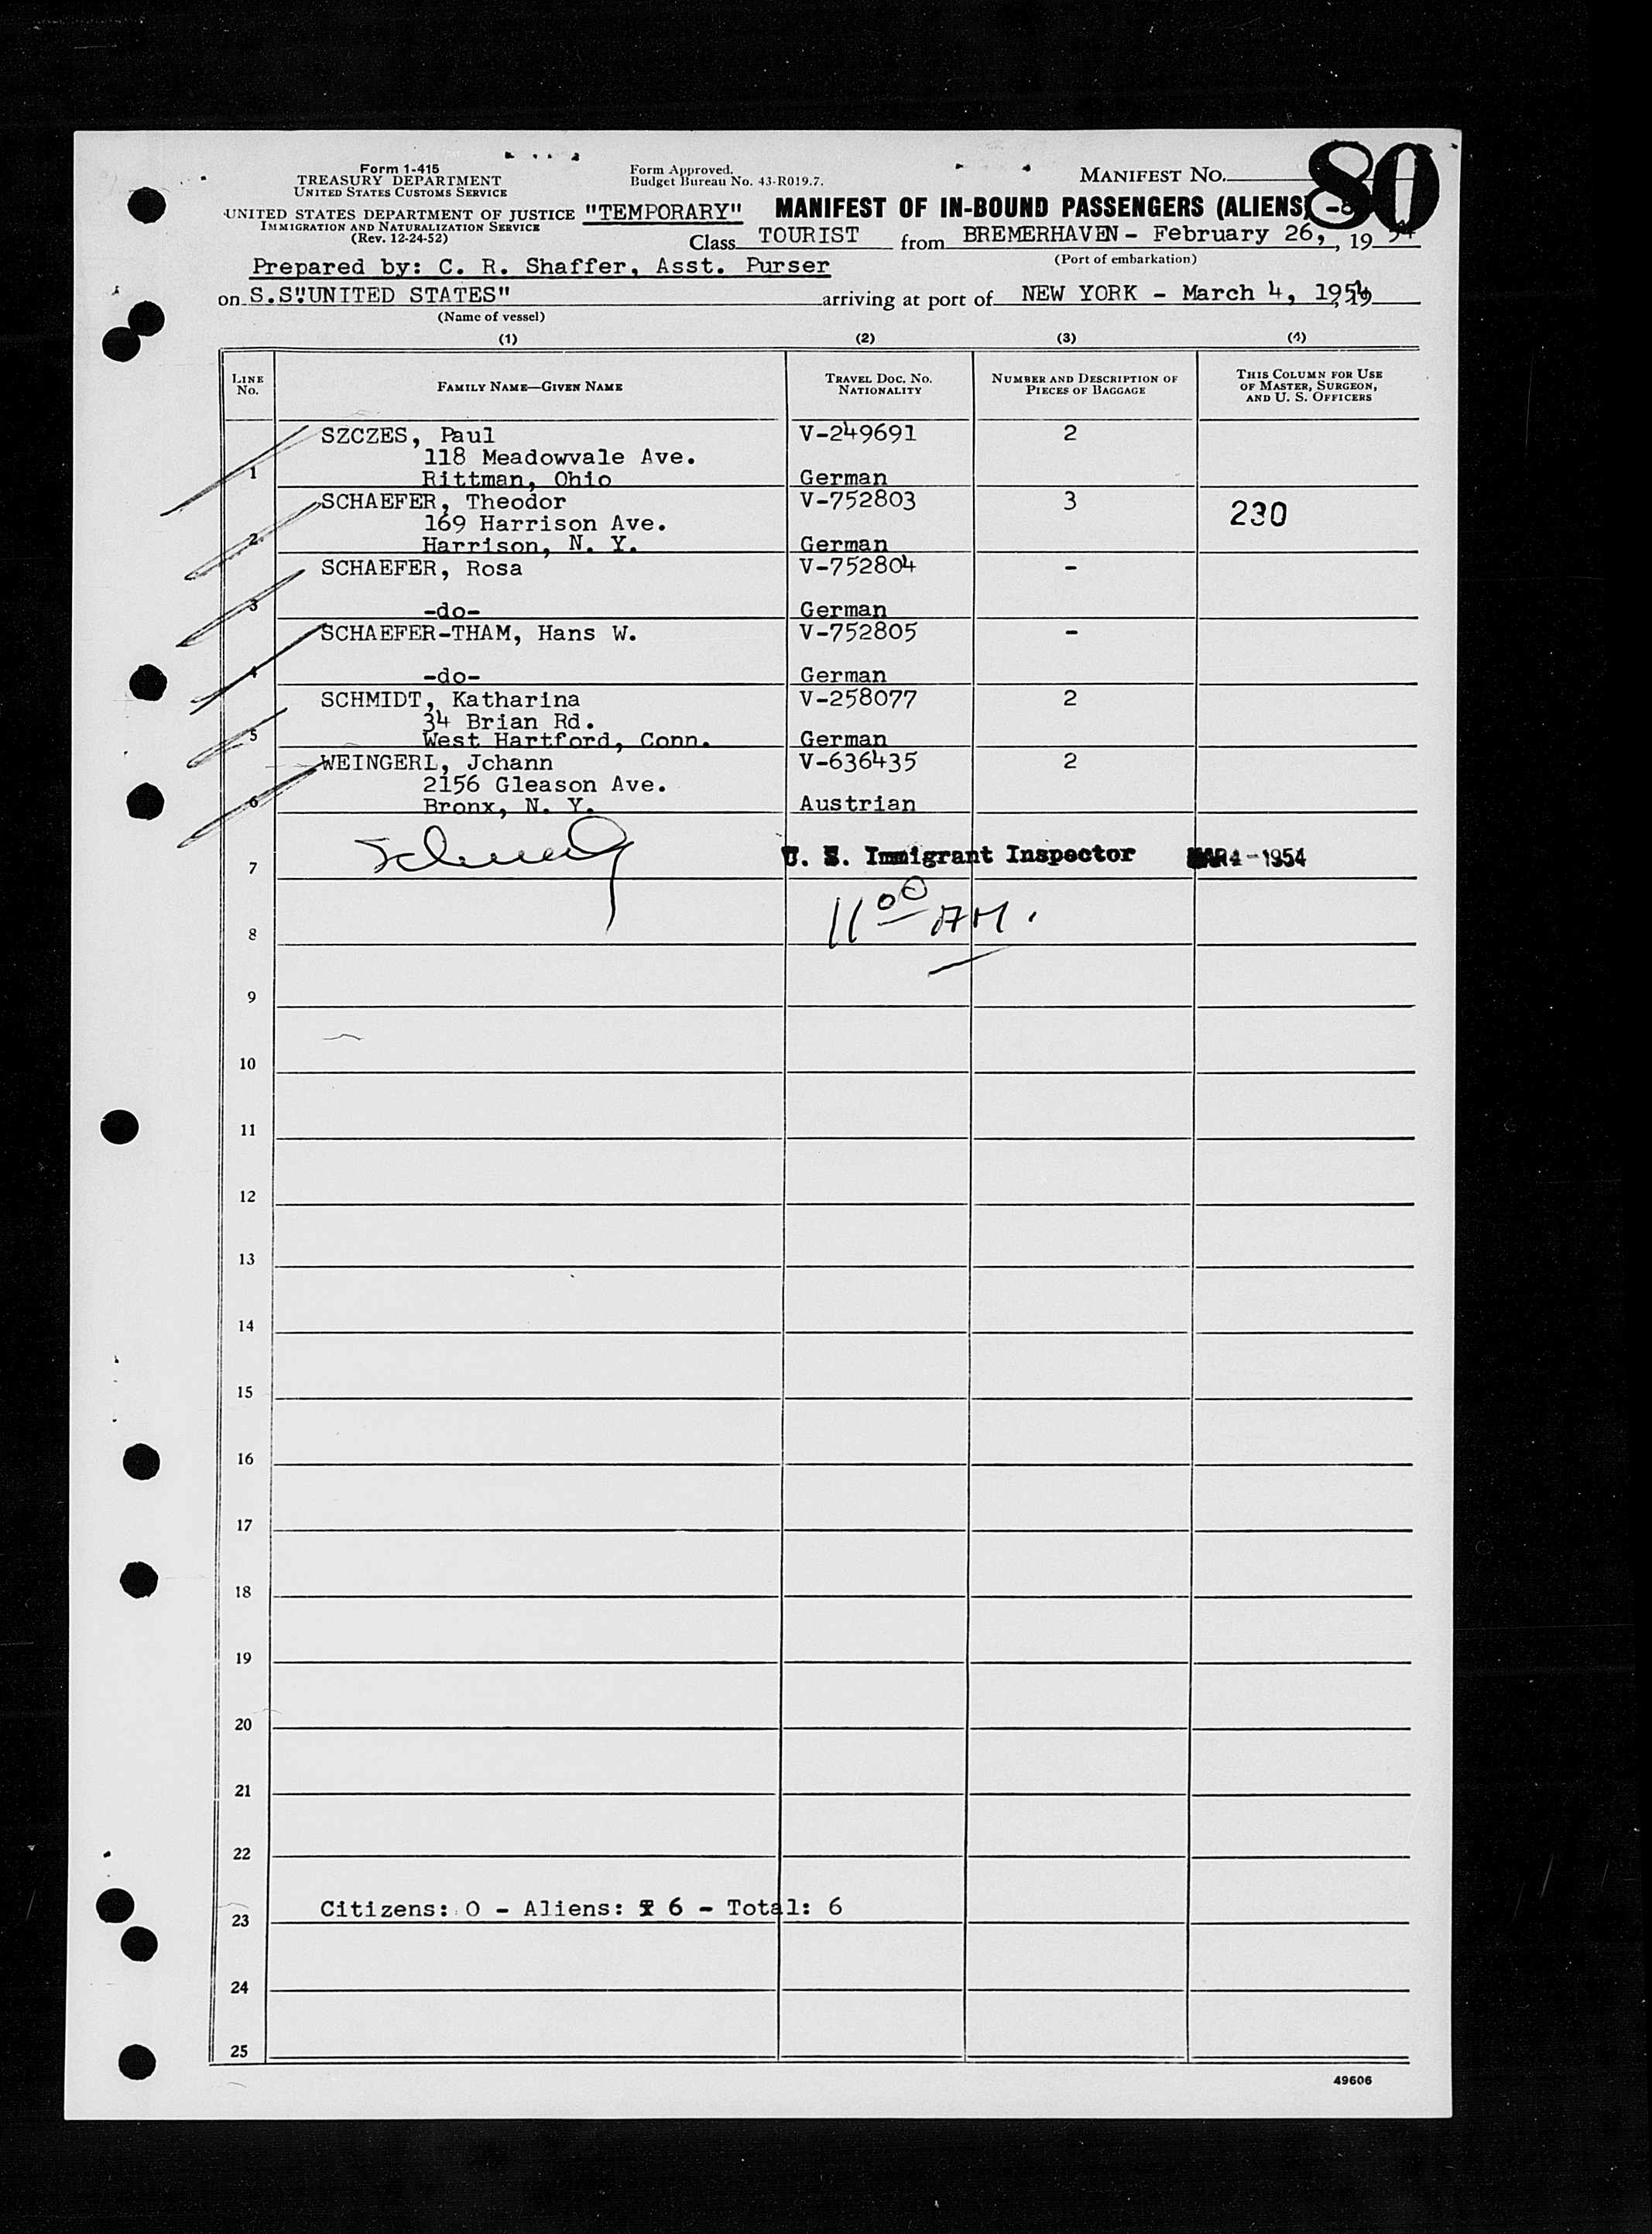 Form 1-415
TREASURY DEPARTMENT
UNITED STATES CUSTOMS SERVICE
UNITED STATES DEPARTMENT OF JUSTICE
IMMIGRATION AND NATURALIZATION SERVICE
(Rev. 12-24-52)
Form Approved.
Budget Bureau No. 43-R019.7.
MANIFEST NO.
80
"TEMPORARY" MANIFEST OF IN-BOUND PASSENGERS (ALIENS)
Class TOURIST from BREMERHAVEN - February 26, , 19 54
(Port of embarkation)
Prepared by: C. R. Shaffer, Asst. Purser
on S.S."UNITED STATES" arriving at port of NEW YORK - March 4, 1954
(Name of vessel)
(1) (2) (3) (4)
LINE No. FAMILY NAME—GIVEN NAME TRAVEL DOC. NO. NATIONALITY NUMBER AND DESCRIPTION OF PIECES OF BAGGAGE THIS COLUMN FOR USE OF MASTER, SURGEON, AND U. S. OFFICERS
SZCZES, Paul V-249691 2
118 Meadowvale Ave.
1 Rittman, Ohio German
SCHAEFER, Theodor V-752803 3 230
169 Harrison Ave.
2 Harrison, N. Y. German
SCHAEFER, Rosa V-752804 -
3 -do- German
SCHAEFER-THAM, Hans W. V-752805 -
4 -do- German
SCHMIDT, Katharina V-258077 2
34 Brian Rd.
5 West Hartford, Conn. German
WEINGERL, Johann V-636435 2
2156 Gleason Ave.
6 Bronx, N. Y. Austrian
7 U. S. Immigrant Inspector MAR 4 - 1954
8 11 00 AM.
9
10
11
12
13
14
15
16
17
18
19
20
21
22
23 Citizens: O - Aliens: 6 - Total: 6
24
25
49606